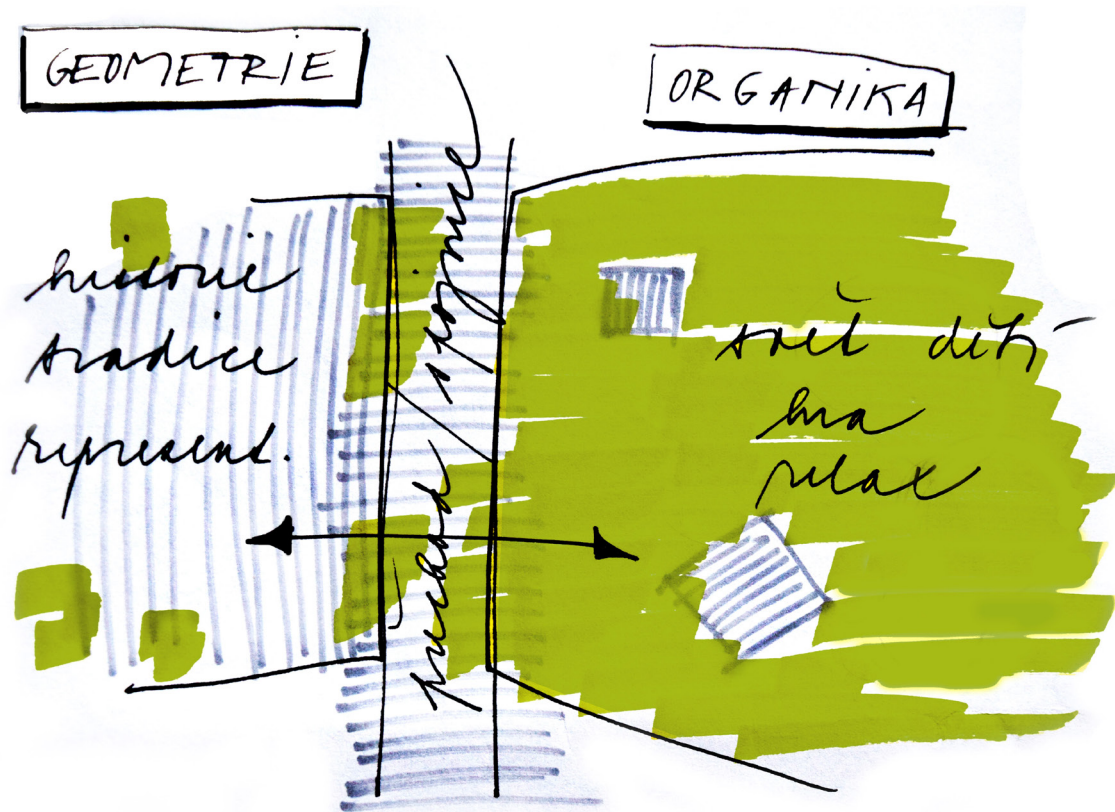 GEOMETRIE
ORGANIKA
historie
tradice
represent.
přechod / spojnice
svět dětí
hra
relax